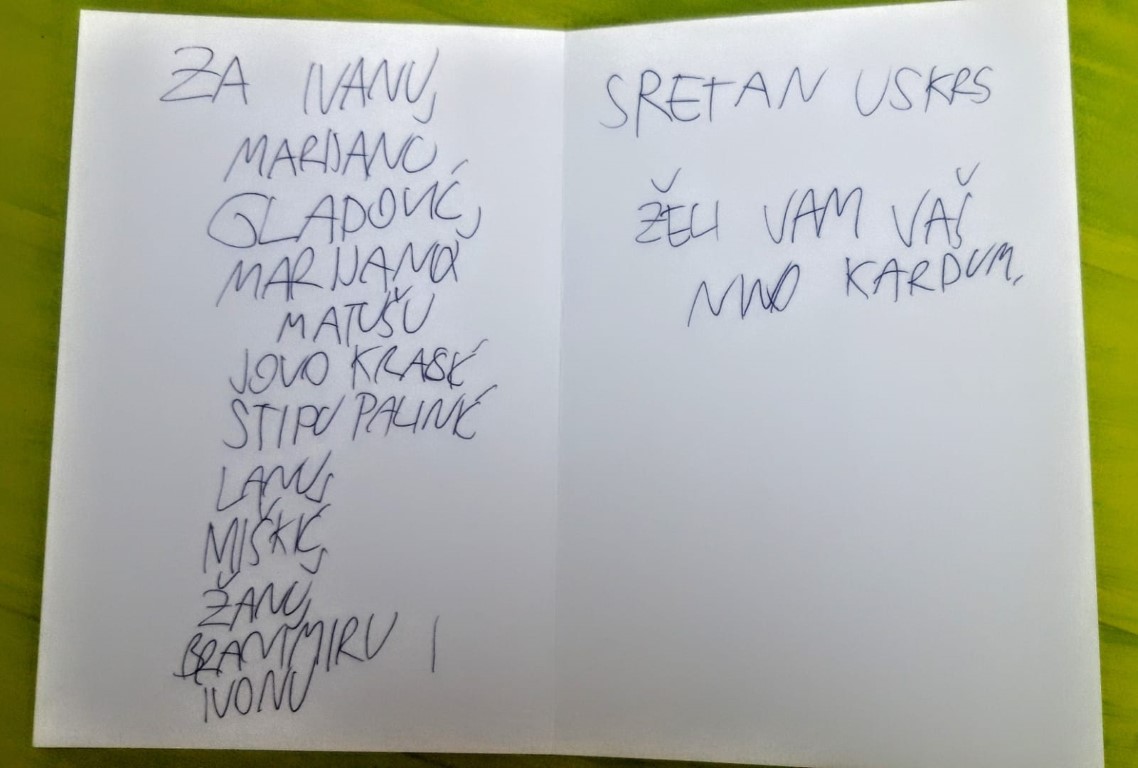 ZA IVANU,
MARIJANO
GLADOVIĆ,
MARIJANA
MATUŠU
JOVO KRASIĆ
STIPU PALINIĆ
LANU,
MIŠKIĆ,
ŽANU,
BRANIMIRU I
IVONU
SRETAN USKRS
ŽELI VAM VAŠ
NINO KARDUM.